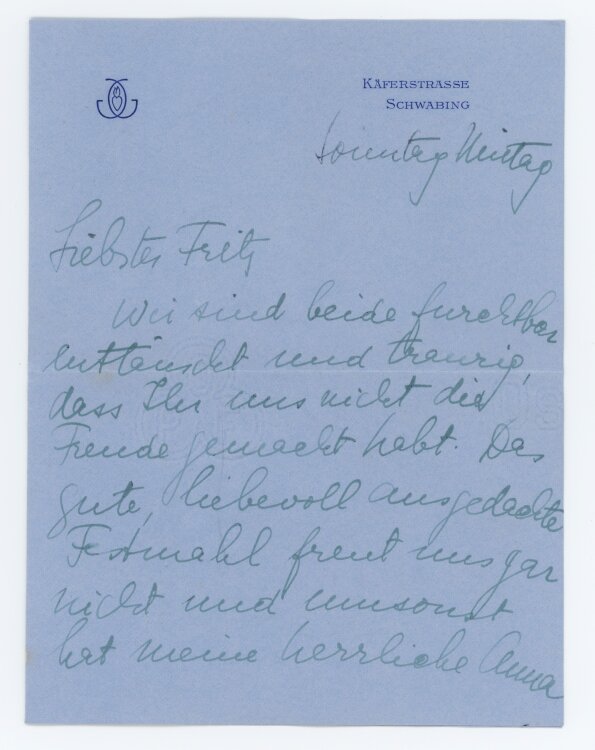 KÄFERSTRASSE
SCHWABING
Sonntag Mittag
Liebster Fritz
Wir sind beide furchtbar
enttäuscht und traurig,
dass Ihr uns nicht die
Freude gemacht habt. Das
gute, liebevoll ausgedachte
Festmahl freut uns gar
nicht und umsonst
hat meine herrliche Anna